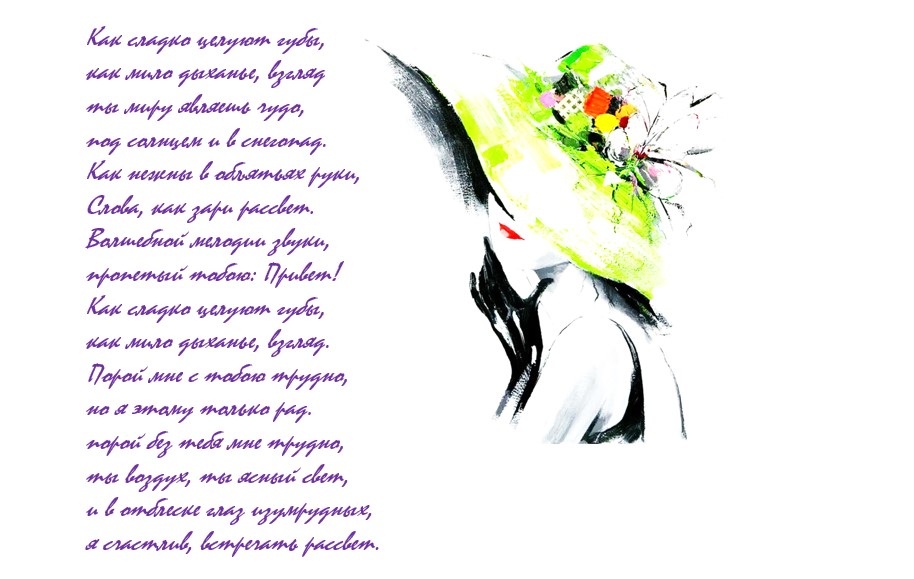 Как сладко целуют губы,
как мило дыханье, взгляд
ты миру являешь чудо,
под солнцем и в снегопад.
Как нежны в объятьях руки,
Слова, как зари рассвет.
Волшебной мелодии звуки,
пропетый тобою: Привет!
Как сладко целуют губы,
как мило дыханье, взгляд.
Порой мне с тобою трудно,
но я этому только рад.
порой без тебя мне трудно,
ты воздух, ты ясный свет,
и в отблеске глаз изумрудных,
я счастлив, встречать рассвет.